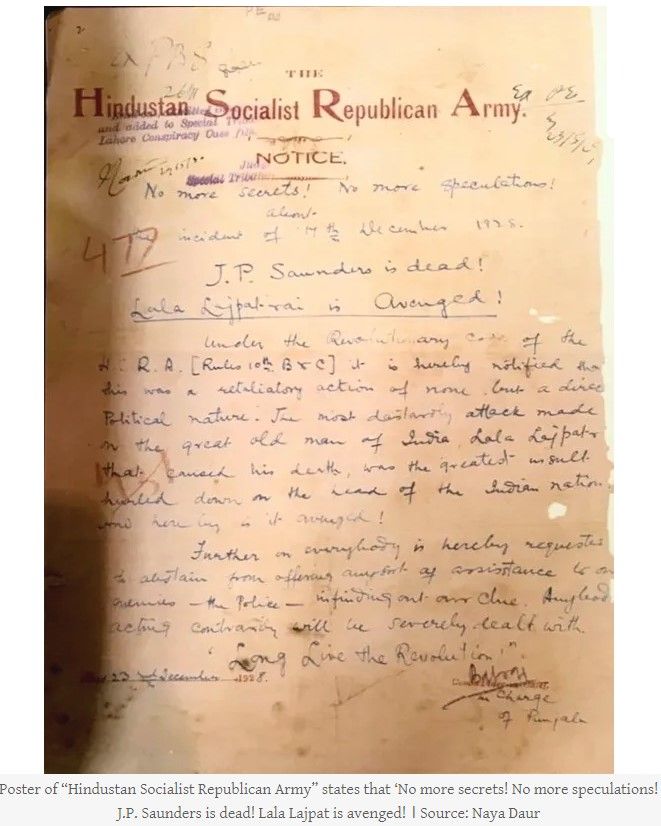 2
THE
Hindustan Socialist Republican Army.
and added to Special
Lahore Conspiracy Case
NOTICE.
Special
No more secrets! No more speculations!
about
the incident of 17th December 1928.
J.P. Saunders is dead!
Lala Lajpatrai is Avenged!
Under the Revolutionary of the
H. R. A. [Rules 10th B & C] it is hereby notified
this was a retaliatory action of none but a direc
Political nature. The most dastardly attack made
on the great old man of India, Lala Lajpat
that caused his death, was the greatest insult
hurled down on the head of the Indian nation
and hereby is it avenged!
Further on everybody is hereby requested
to abstain from offering any sort of assistance to
enemies – the Police – in finding out our clue. Anybody
acting contrarily will be severely dealt with.
"Long Live the Revolution!"
23rd December 1928.
in Charge
of Punjab
Poster of “Hindustan Socialist Republican Army” states that ‘No more secrets! No more speculations!
J.P. Saunders is dead! Lala Lajpat is avenged! | Source: Naya Daur